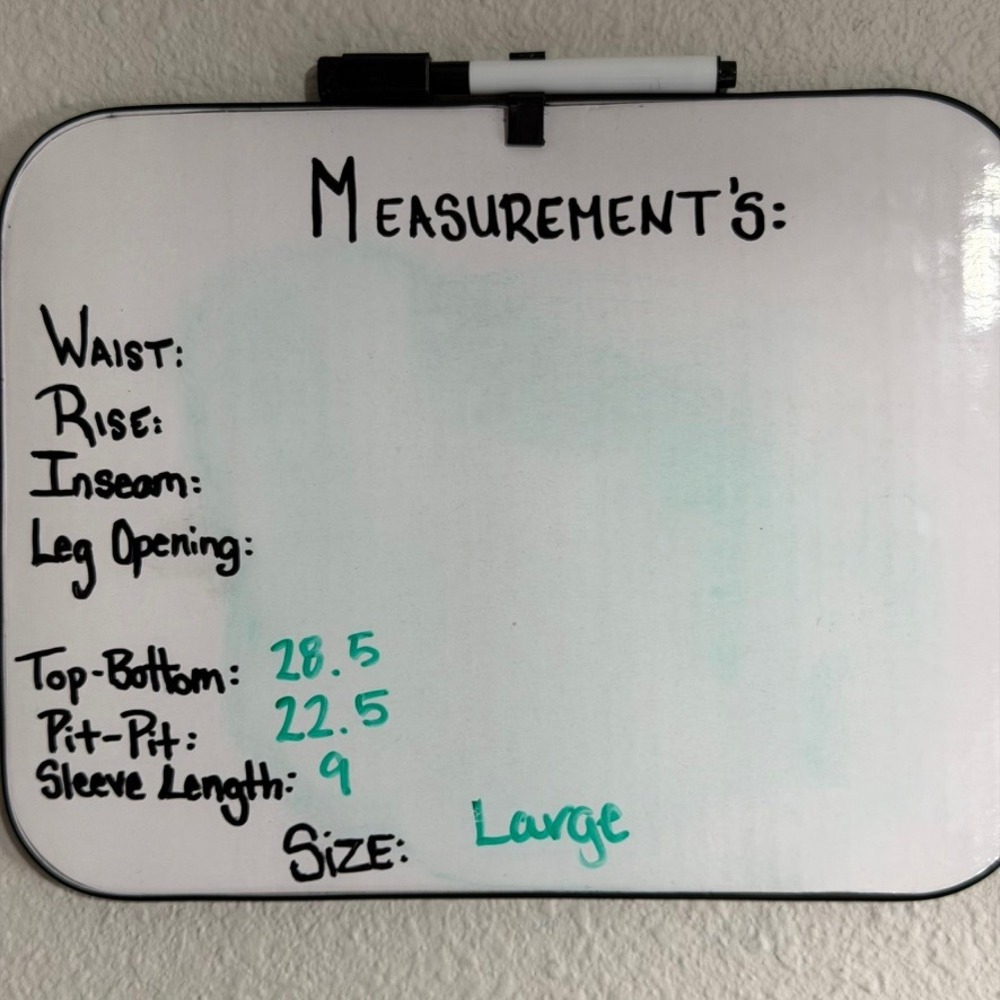 MEASUREMENT'S:
WAIST:
RISE:
Inseam:
Leg Opening:
Top-Bottom: 28.5
Pit-Pit: 22.5
Sleeve Length: 9
SiZE: Large